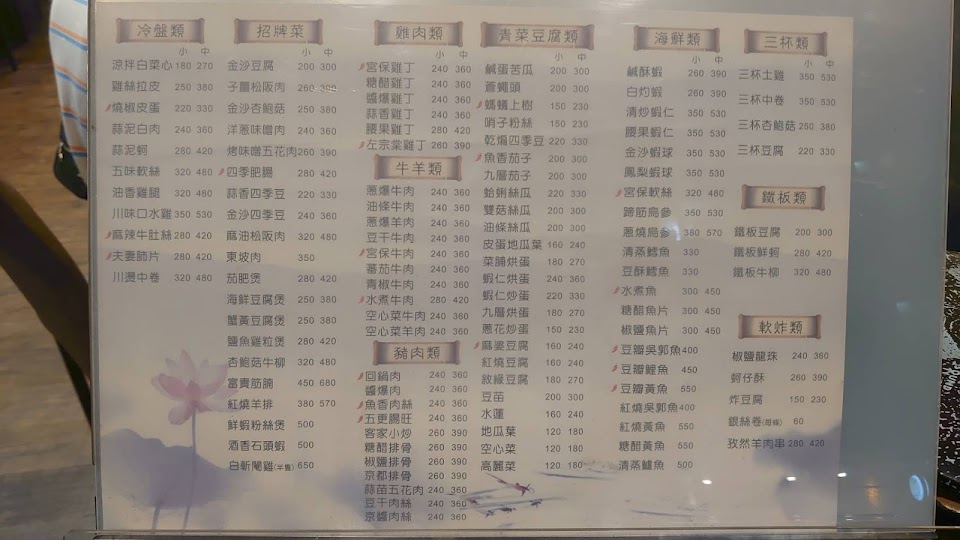 冷盤類
小 中
涼拌白菜心 180 270
雞絲拉皮 250 380
燒椒皮蛋 220 330
蒜泥白肉 240 360
蒜泥蚵 280 420
五味軟絲 320 480
油香雞腿 320 480
川味口水雞 350 530
麻辣牛肚絲 280 420
夫妻肺片 280 420
川燙中卷 320 480
招牌菜
小 中
金沙豆腐 200 300
子薑松阪肉 260 390
金沙杏鮑菇 250 380
洋蔥味噌肉 240 360
烤味噌五花肉 260 390
四季肥腸 280 420
蒜香四季豆 220 330
金沙四季豆 240 360
麻油松阪肉 320 480
東坡肉 350
茄肥煲 280 420
海鮮豆腐煲 250 380
蟹黃豆腐煲 250 380
鹽魚雞粒煲 280 420
杏鮑菇牛柳 320 480
富貴筋腩 450 680
紅燒羊排 380 570
鮮蝦粉絲煲 500
酒香石頭蝦 500
白斬閹雞(半隻) 650
雞肉類
小 中
宮保雞丁 240 360
糖醋雞丁 240 360
醬爆雞丁 240 360
蒜香雞丁 240 360
腰果雞丁 280 420
左宗棠雞丁 260 390
牛羊類
蔥爆牛肉 240 360
油條牛肉 240 360
蔥爆羊肉 240 360
豆干牛肉 240 360
宮保牛肉 240 360
蕃茄牛肉 240 360
青椒牛肉 240 360
水煮牛肉 280 420
空心菜牛肉 240 360
空心菜羊肉 240 360
豬肉類
回鍋肉 240 360
醬爆肉 240 360
魚香肉絲 240 360
五更腸旺 240 360
客家小炒 260 390
糖醋排骨 260 390
椒鹽排骨 260 390
京都排骨 260 390
蒜苗五花肉 240 360
豆干肉絲 240 360
京醬肉絲 240 360
青菜豆腐類
小 中
鹹蛋苦瓜 200 300
蒼蠅頭 200 300
螞蟻上樹 150 230
哨子粉絲 150 230
乾煸四季豆 220 330
魚香茄子 200 300
九層茄子 200 300
蛤蜊絲瓜 220 330
雙菇絲瓜 200 300
油條絲瓜 200 300
皮蛋地瓜葉 160 240
菜脯烘蛋 180 270
蝦仁烘蛋 240 360
蝦仁炒蛋 220 330
九層烘蛋 180 270
蔥花炒蛋 150 230
麻婆豆腐 160 240
紅燒豆腐 160 240
敘緣豆腐 180 270
豆苗 200 300
水蓮 160 240
地瓜葉 120 180
空心菜 120 180
高麗菜 120 180
海鮮類
小 中
鹹酥蝦 260 390
白灼蝦 260 390
清炒蝦仁 350 530
腰果蝦仁 350 530
金沙蝦球 350 530
鳳梨蝦球 350 530
宮保軟絲 320 480
蹄筋烏參 350 530
蔥燒烏參 380 570
清蒸鱈魚 330
豆酥鱈魚 330
水煮魚 300 450
糖醋魚片 300 450
椒鹽魚片 300 450
豆瓣吳郭魚 400
豆瓣鯉魚 450
豆瓣黃魚 550
紅燒吳郭魚 400
紅燒黃魚 550
糖醋黃魚 550
清蒸鱸魚 500
三杯類
小 中
三杯土雞 350 530
三杯中卷 350 530
三杯杏鮑菇 250 380
三杯豆腐 220 330
鐵板類
鐵板豆腐 200 300
鐵板鮮蚵 280 420
鐵板牛柳 320 480
軟炸類
椒鹽龍珠 240 360
蚵仔酥 260 390
炸豆腐 150 230
銀絲卷(甜條) 60
孜然羊肉串 280 420